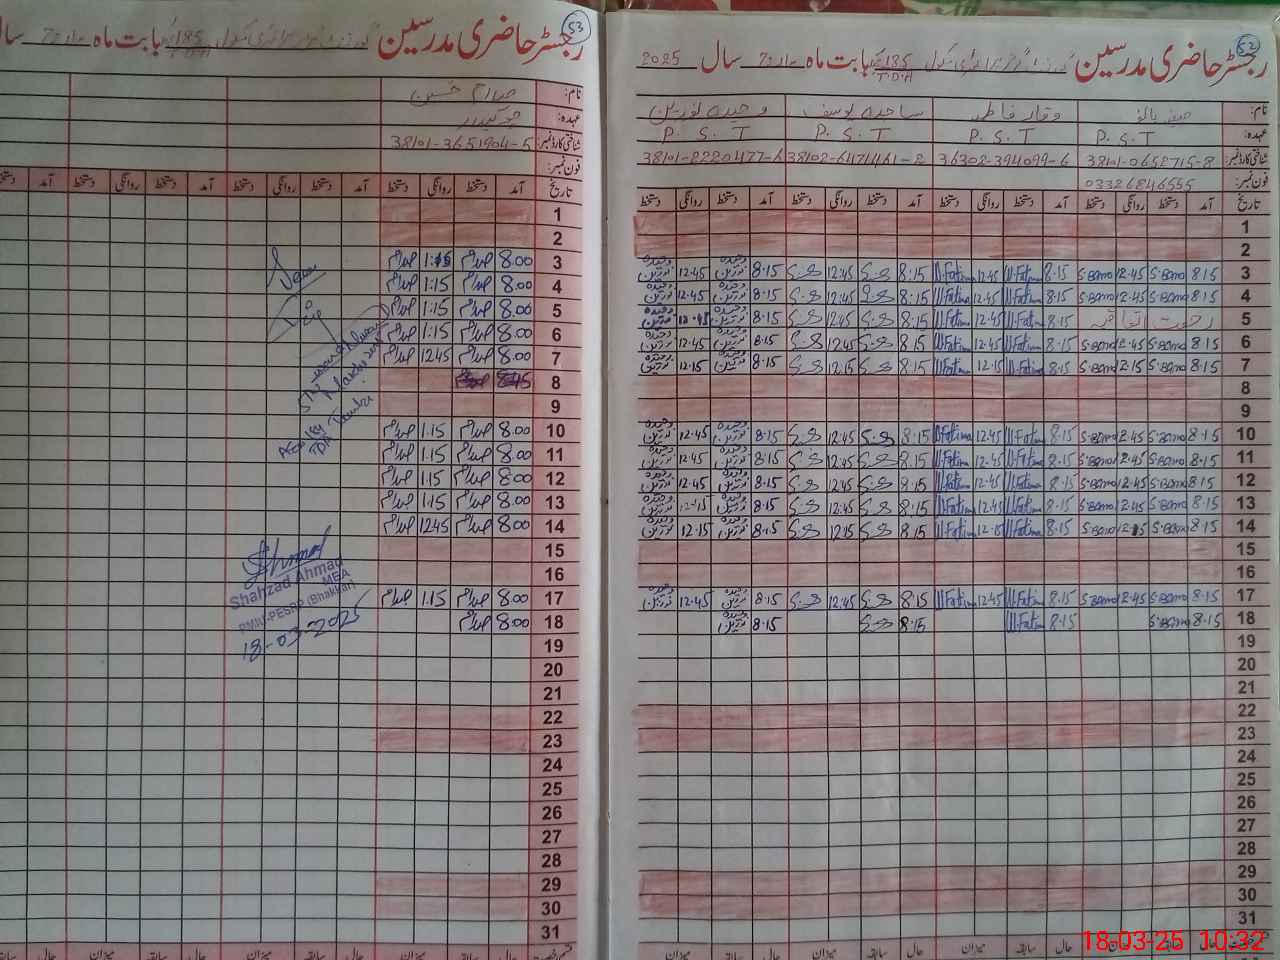 52
رجسٹر حاضری مدرسین گورنمنٹ گرلز پرائمری سکول 185 T.D.A بابت ماہ مارچ سال 2025
نام: وقار فاطمہ ساجدہ یوسف وحیدہ نورین
عہدہ: P.S.T P.S.T P.S.T P.S.T
شناختی کارڈ نمبر: 38101-0652715-8 36302-394099-6 38102-6471461-2 38101-2220477-6
فون نمبر: 03326846555
تاریخ آمد دستخط روانگی دستخط آمد دستخط روانگی دستخط آمد دستخط روانگی دستخط آمد دستخط روانگی دستخط
1
2
3 8.15 S.Bano 12.45 S.Bano 8.15 W.Fatima 12.45 W.Fatima 8:15 12:45 8.15 وحیدہ نورین 12.45 وحیدہ نورین
4 8.15 S.Bano 12.45 S.Bano 8.15 W.Fatima 12.45 W.Fatima 8:15 12:45 8.15 وحیدہ نورین 12.45 وحیدہ نورین
5 رخصت اتفاقیہ 8.15 W.Fatima 12.45 W.Fatima 8:15 12:45 8.15 وحیدہ نورین 12.45 وحیدہ نورین
6 8.15 S.Bano 12.45 S.Bano 8.15 W.Fatima 12.45 W.Fatima 8.15 12.45 8.15 وحیدہ نورین 12.45 وحیدہ نورین
7 8.15 S.Bano 12.15 S.Bano 8.15 W.Fatima 12.15 W.Fatima 8.15 12.15 8.15 وحیدہ نورین 12.15 وحیدہ نورین
8
9
10 8.15 S.Bano 12.45 S.Bano 8.15 W.Fatima 12.45 W.Fatima 8:15 12:45 8.15 وحیدہ نورین 12.45 وحیدہ نورین
11 8.15 S.Bano 12.45 S.Bano 8.15 W.Fatima 12.45 W.Fatima 8.15 12.45 8.15 وحیدہ نورین 12.45 وحیدہ نورین
12 8.15 S.Bano 12.45 S.Bano 8.15 W.Fatima 12.45 W.Fatima 8.15 12.45 8.15 وحیدہ نورین 12.45 وحیدہ نورین
13 8.15 S.Bano 12.45 S.Bano 8.15 W.Fatima 12.45 W.Fatima 8.15 12.45 8.15 وحیدہ نورین وحیدہ نورین
14 8.15 S.Bano 12.15 S.Bano 8.15 W.Fatima 12.15 W.Fatima 8.15 12.15 8.15 وحیدہ نورین 12.15 وحیدہ نورین
15
16
17 8.15 S.Bano 12.45 S.Bano 8.15 W.Fatima 12.45 W.Fatima 8.15 12:45 8.15 وحیدہ نورین 12.45 وحیدہ نورین
18 8.15 S.Bano 8.15 W.Fatima 8.15 8.15 وحیدہ نورین
19
20
21
22
23
24
25
26
27
28
29
30
31
حال سابقہ میزان حال سابقہ میزان حال سابقہ میزان
53
رجسٹر حاضری مدرسین گورنمنٹ گرلز پرائمری سکول 185 T.D.A بابت ماہ مارچ سال
نام: صدام حسین
عہدہ: چوکیدار
شناختی کارڈ نمبر: 38101-3651904-5
فون نمبر:
تاریخ آمد دستخط روانگی دستخط آمد دستخط روانگی دستخط آمد دستخط روانگی دستخط آمد دستخط
1
2
3 8.00 صدام 1:15 صدام
4 8.00 صدام 1:15 صدام
5 8.00 صدام 1:15 صدام
6 8.00 صدام 1:15 صدام
7 8.00 صدام 12.45 صدام
8
9
10 8.00 صدام 1.15 صدام
11 8.00 صدام 1.15 صدام
12 8.00 صدام 1:15 صدام
13 8.00 صدام 1:15 صدام
14 8.00 صدام 12.45 صدام
15
16
17 8.00 صدام 1.15 صدام
18 8.00 صدام
19
20
21
22
23
24
25
26
27
28
29
30
31
حال سابقہ میزان حال سابقہ میزان
Shahzad Ahmad
MEA
PMIU-PESRP (Bhakkar)
18-03-2025
18-03-25 10:32